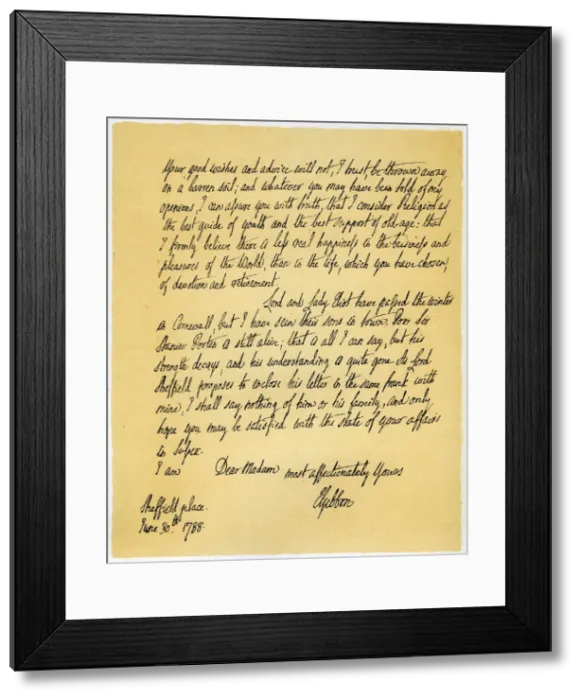 Your good wishes and advice will not, I trust be thrown away
on a barren soil; and whatever you may have been told of my
opinions, I can assure you with truth, that I consider Religion as
the best guide of youth and the best support of old age: that
I firmly believe there is less real happiness in the business and
pleasures of the World, than in the life, which you have chosen,
of devotion and retirement.
Lord and Lady Eliot have passed the winter
in Cornwall, but I have seen their sons in town. Poor Sir
Stanier Porten is still alive; that is all I can say, but his
strength decays, and his understanding is quite gone. As Lord
Sheffield proposes to enclose his letter in the same frank with
mine, I shall say nothing of him or his family, and only
hope you may be satisfied with the state of your affairs
in Sussex.
I am Dear Madam most affectionately Yours
EGibbon
Sheffield place.
June 30th 1788.